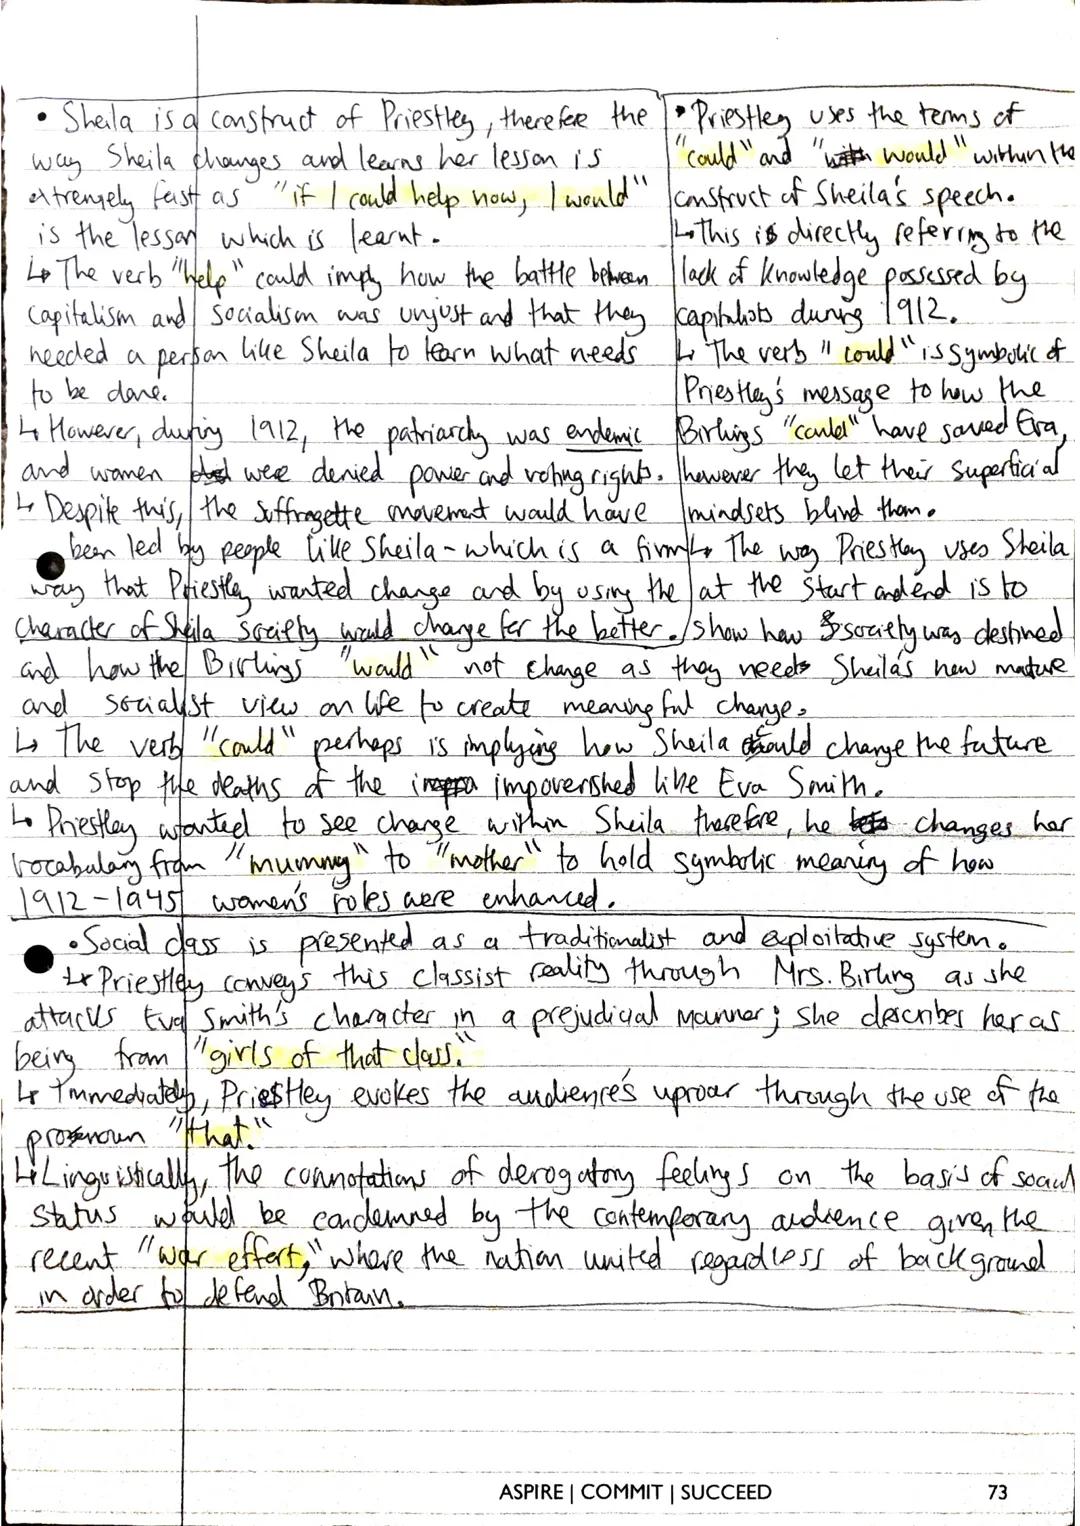 • Sheila is a construct of Priestley, therefore the
way Sheila changes and learns her lesson is
extremely fast as "if I could help now, I would"
is the lesson which is learnt.
↳ The verb "help" could imply how the battle between
capitalism and socialism was unjust and that they
needed a person like Sheila to learn what needs
to be done.
↳ However, during 1912, the patriarchy was endemic
and women were denied power and voting rights.
↳ Despite this, the suffragette movement would have
been led by people like Sheila - which is a firm
way that Priestley wanted change and by using the
character of Sheila society would change for the better.
• Priestley uses the terms of
"could" and "would" within the
construct of Sheila's speech.
↳ This is directly referring to the
lack of knowledge possessed by
capitalists during 1912.
↳ The verb "could" is symbolic of
Priestley's message to how the
Birlings "could" have saved Eva,
however they let their superficial
mindsets blind them.
↳ The way Priestley uses Sheila
at the start and end is to
show how society was destined
and how the Birlings "would" not change as they needs Sheila's new mature
and socialist view on life to create meaningful change.
↳ The verb "could" perhaps is implying how Sheila could change the future
and stop the deaths of the impoverished like Eva Smith.
↳ Priestley wanted to see change within Sheila therefore, he changes her
vocabulary from "mummy" to "mother" to hold symbolic meaning of how
1912-1945 women's roles were enhanced.
• Social class is presented as a traditionalist and exploitative system.
↳ Priestley conveys this classist reality through Mrs. Birling as she
attacks Eva Smith's character in a prejudicial manner; she describes her as
being from "girls of that class."
↳ Immediately, Priestley evokes the audience's uproar through the use of the
pronoun "that."
↳ Linguistically, the connotations of derogatory feelings on the basis of social
status would be condemned by the contemporary audience given the
recent "war effort," where the nation united regardless of background
in order to defend Britain.
ASPIRE | COMMIT | SUCCEED 73